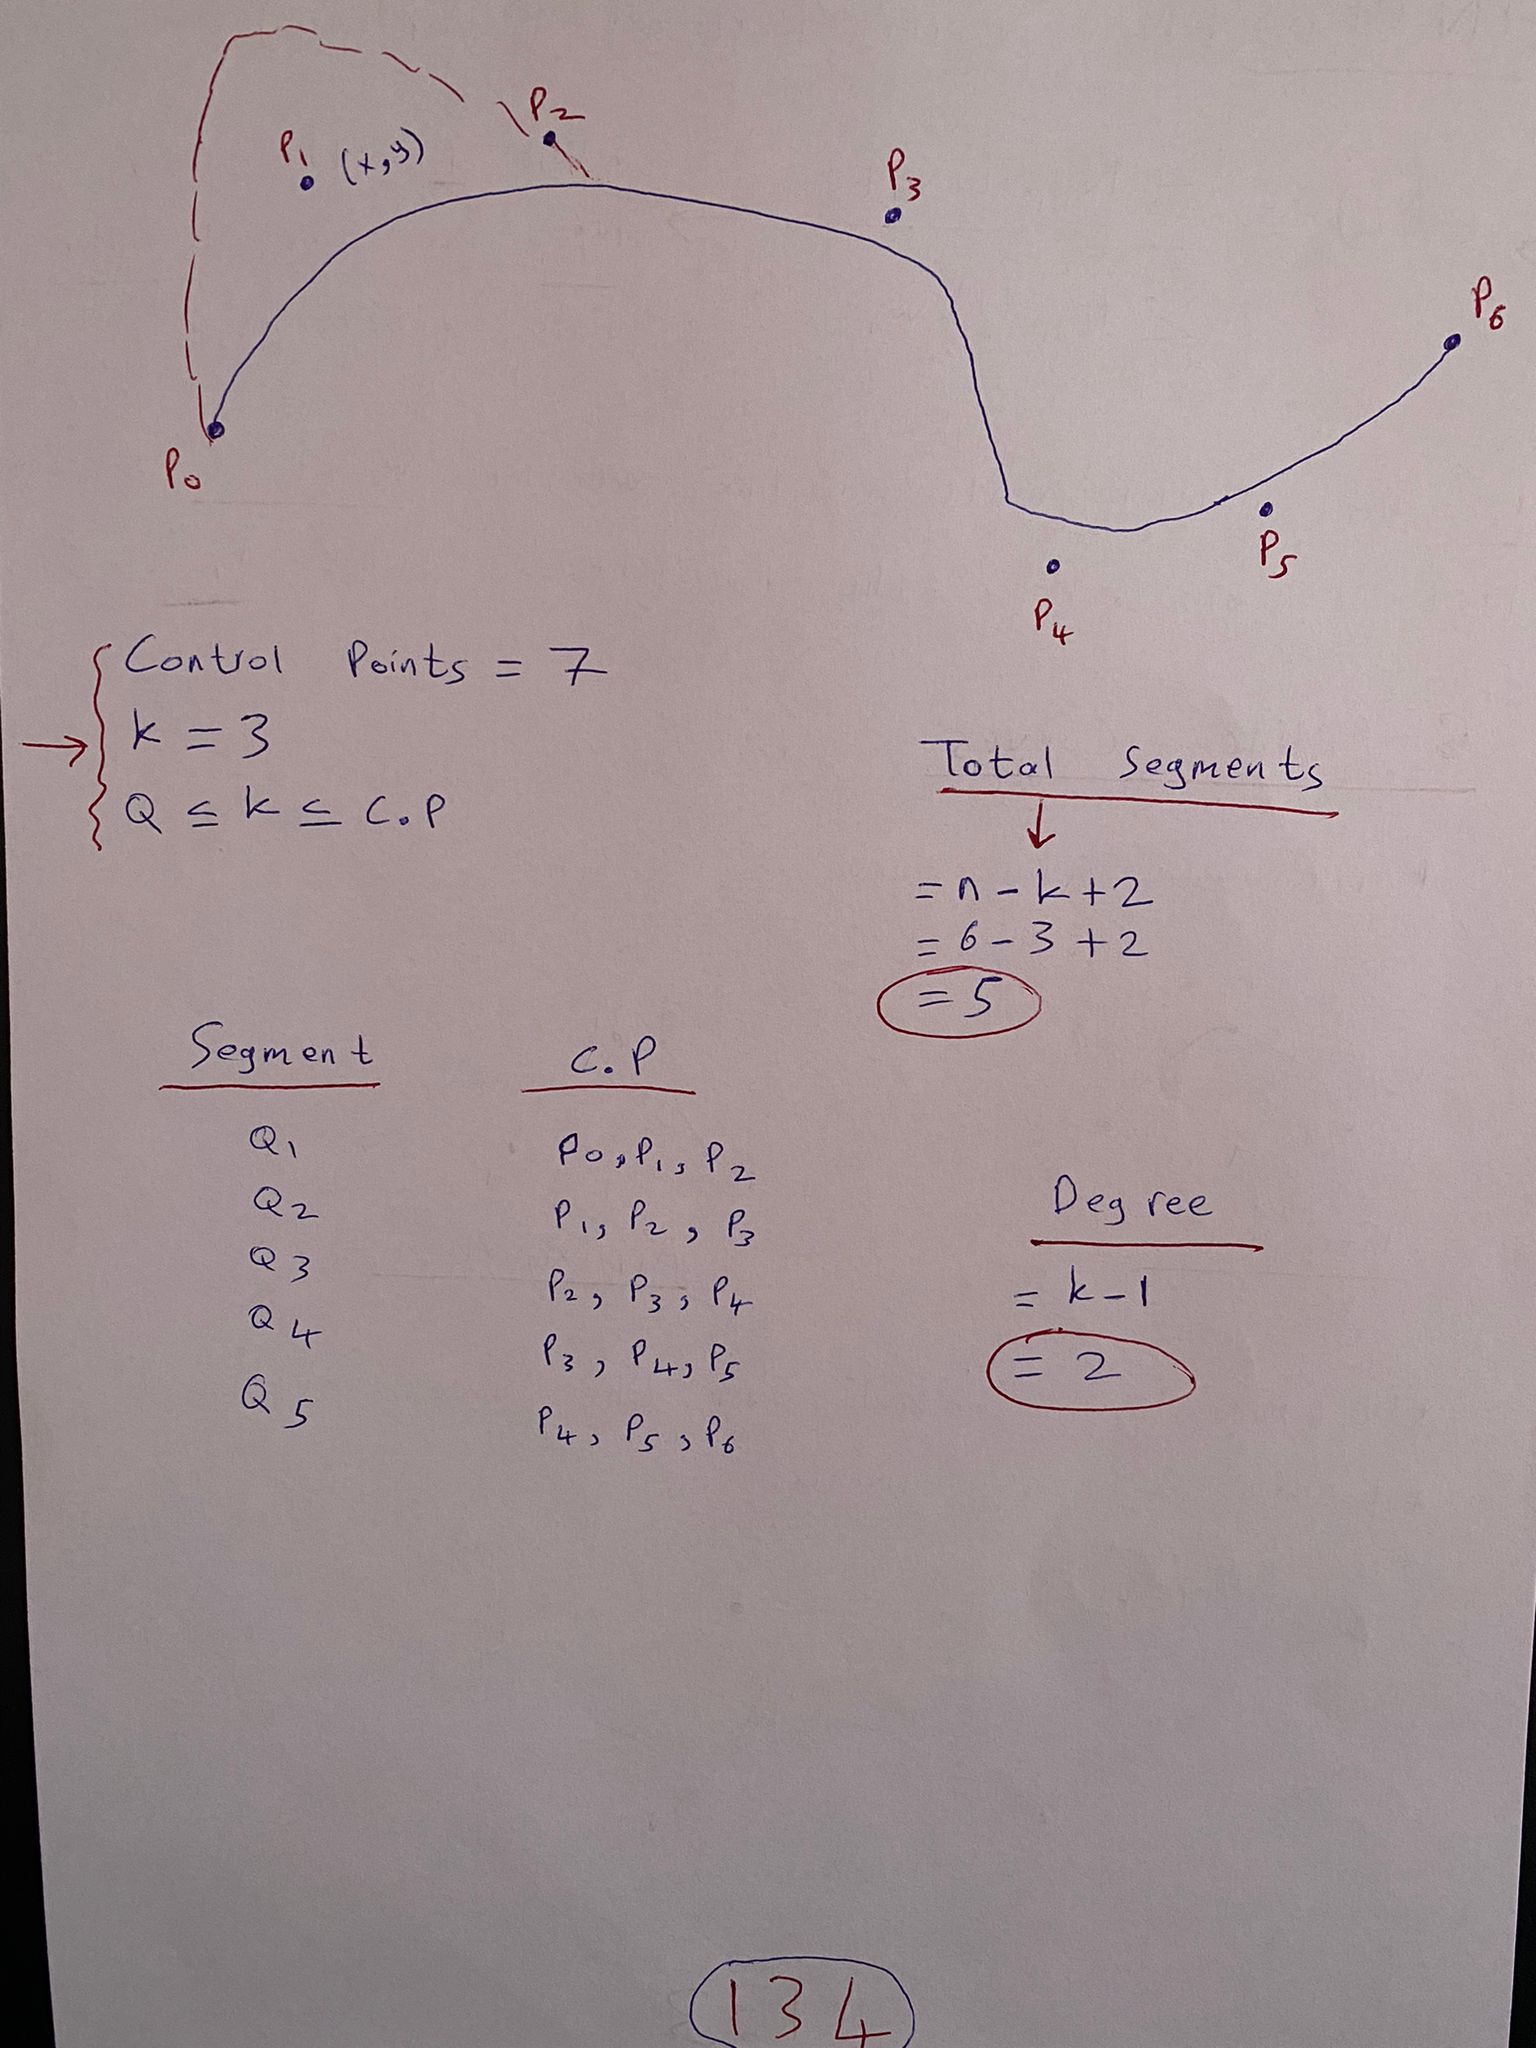 P2
P1 (x,y)
P3
P6
P0
P5
P4
Control Points = 7
k = 3
Q ≤ k ≤ C.P
Total Segments
= n - k + 2
= 6 - 3 + 2
= 5
Segment C.P
Q1 P0, P1, P2
Q2 P1, P2, P3
Q3 P2, P3, P4
Q4 P3, P4, P5
Q5 P4, P5, P6
Degree
= k - 1
= 2
134